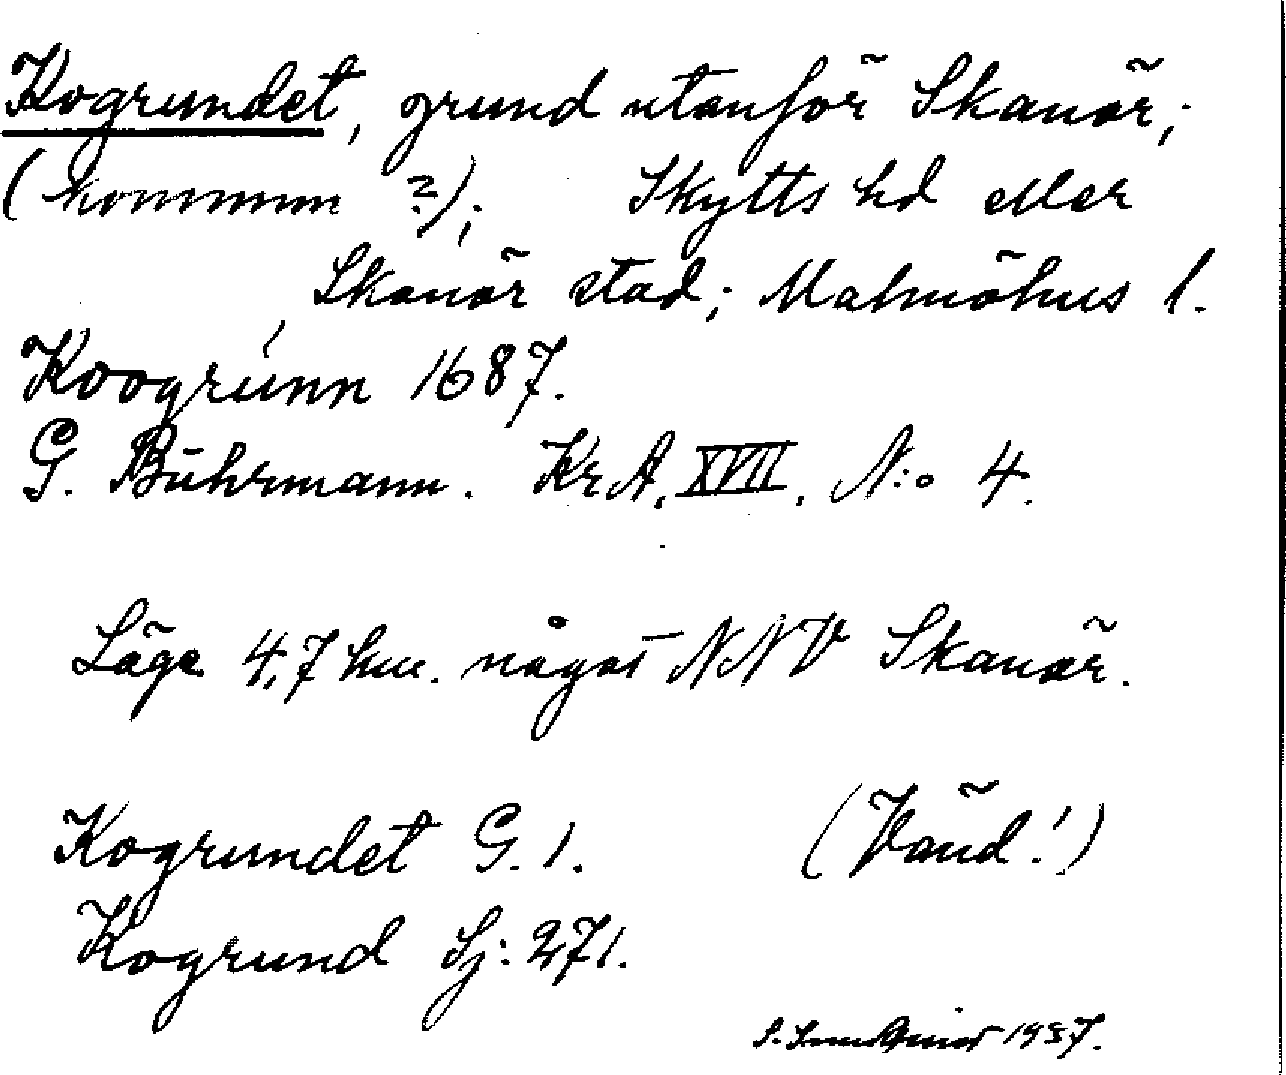 Kogrundet, grund utanför Skanör;
(kommun ?); Skytts hd eller
Skanör stad; Malmöhus l.
Koogrúnn 1687.
G. Bührmann. KrA, XVII, N:o 4.
Läge 4,7 km. något NNV Skanör.
Kogrundet G. 1. (Vänd!)
Kogrund Sj: 271.
S. 1937.